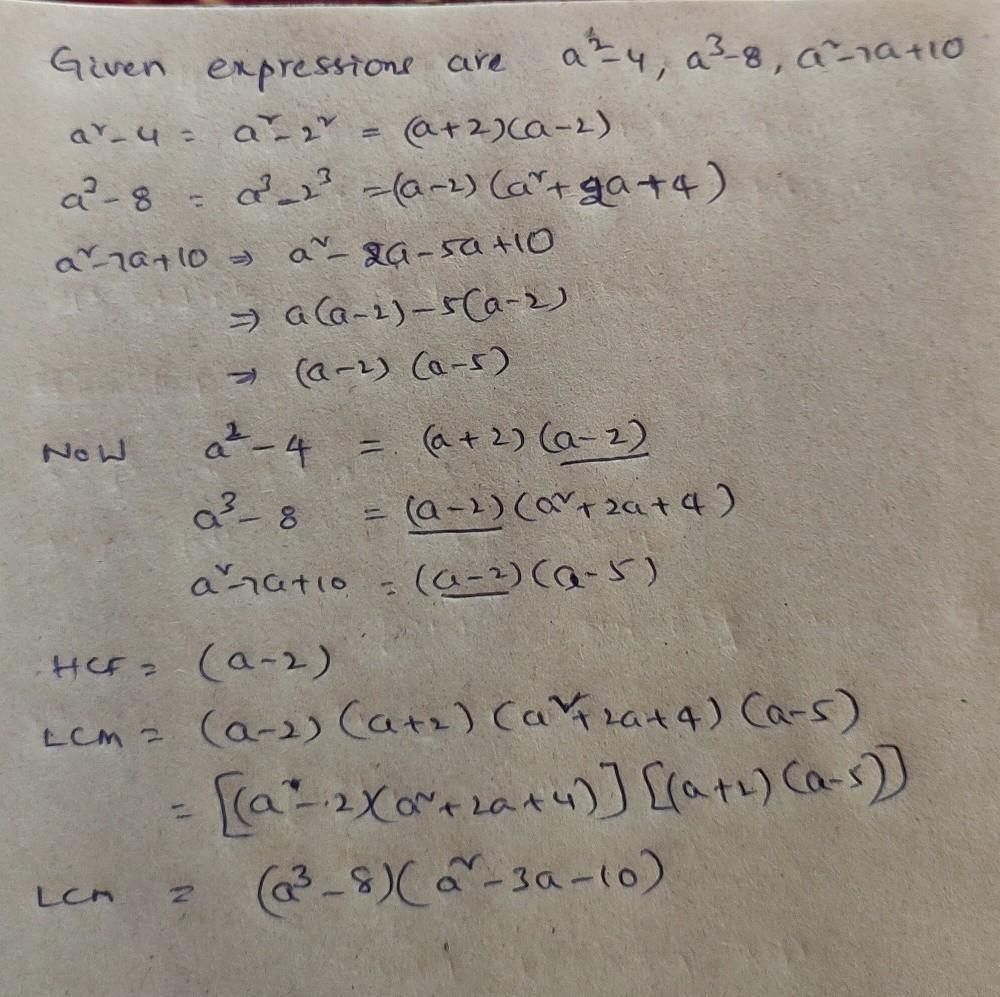 Given expressions are a²-4, a³-8, a²-7a+10
a²-4 = a²-2² = (a+2)(a-2)
a³-8 = a³-2³ =(a-2) (a²+2a+4)
a²-7a+10 ⇒ a²-2a-5a+10
⇒ a(a-2)-5(a-2)
⇒ (a-2) (a-5)
NOW a²-4 = (a+2)(a-2)
a³-8 = (a-2)(a²+2a+4)
a²-7a+10 = (a-2)(a-5)
HCF = (a-2)
LCM = (a-2)(a+2)(a²+2a+4)(a-5)
= [(a-2)(a²+2a+4)][(a+2)(a-5)]
LCM = (a³-8)(a²-3a-10)